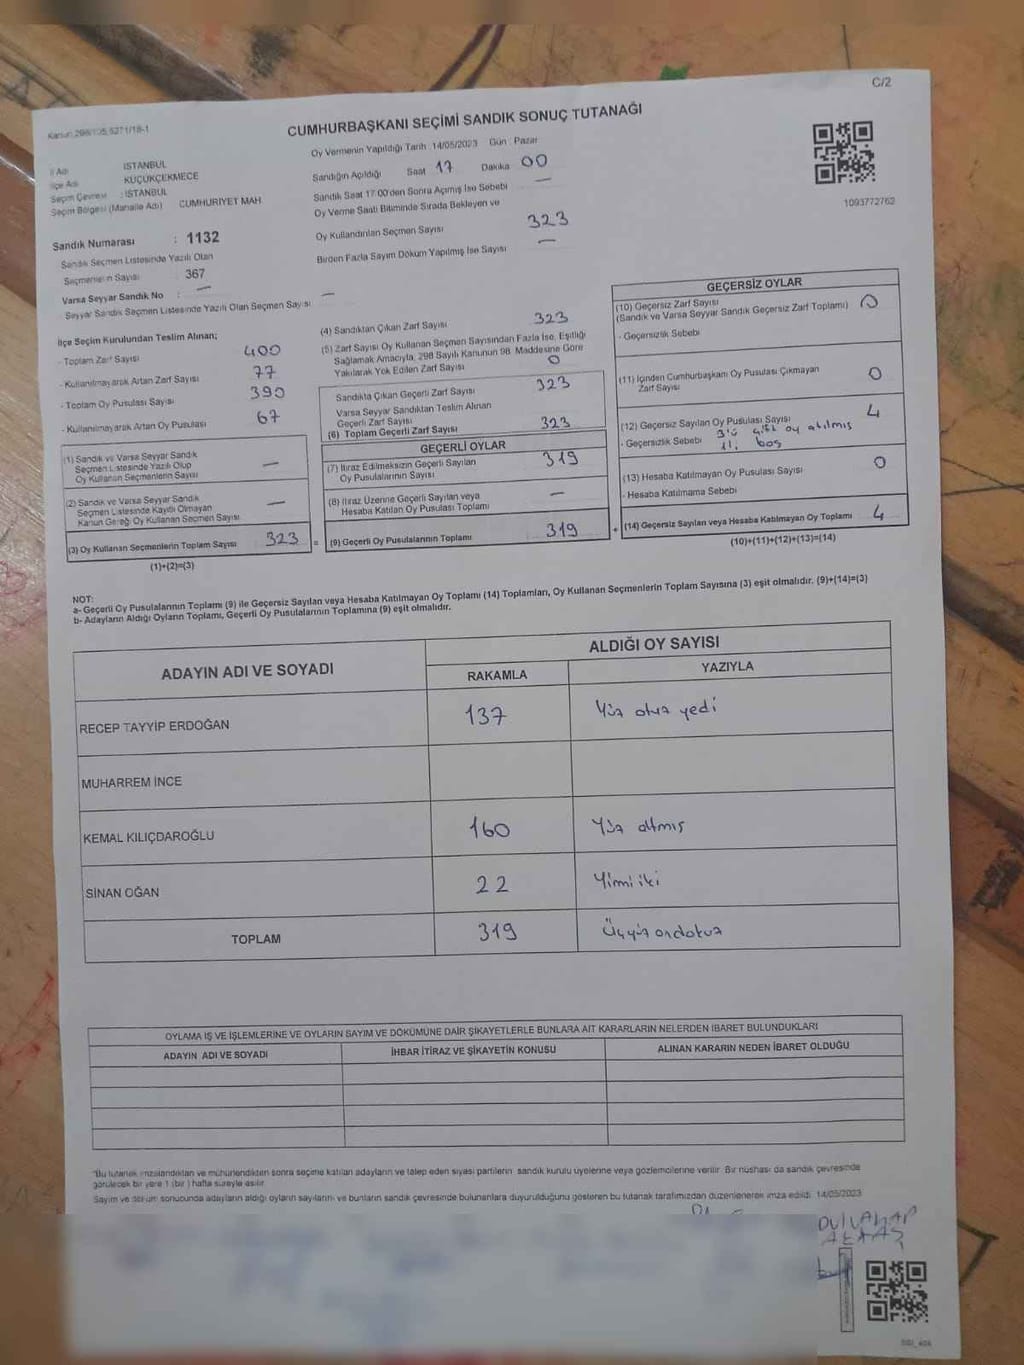 C/2
Kanun 298/105,6271/18-1
CUMHURBAŞKANI SEÇİMİ SANDIK SONUÇ TUTANAĞI
Oy Vermenin Yapıldığı Tarih :14/05/2023 Gün : Pazar
İl Adı İSTANBUL
İlçe Adı KÜÇÜKÇEKMECE
Seçim Çevresi : İSTANBUL
Seçim Bölgesi (Mahalle Adı) CUMHURİYET MAH
Sandığın Açıldığı Saat 17 Dakika 00
Sandık Saat 17:00'den Sonra Açımış İse Sebebi —
Oy Verme Saati Bitiminde Sırada Bekleyen ve
Oy Kullandırılan Seçmen Sayısı 323
Birden Fazla Sayım Döküm Yapılmış İse Sayısı —
1093772762
Sandık Numarası : 1132
Sandık Seçmen Listesinde Yazılı Olan
Seçmenlerin Sayısı 367
Varsa Seyyar Sandık No : —
Seyyar Sandık Seçmen Listesinde Yazılı Olan Seçmen Sayısı —
İlçe Seçim Kurulundan Teslim Alınan;
- Toplam Zarf Sayısı 400
- Kullanılmayarak Artan Zarf Sayısı 77
- Toplam Oy Pusulası Sayısı 390
- Kullanılmayarak Artan Oy Pusulası 67
(1) Sandık ve Varsa Seyyar Sandık
Seçmen Listesinde Yazılı Olup
Oy Kullanan Seçmenlerin Sayısı —
(2) Sandık ve Varsa Seyyar Sandık
Seçmen Listesinde Kayıtlı Olmayan
Kanun Gereği Oy Kullanan Seçmen Sayısı —
(3) Oy Kullanan Seçmenlerin Toplam Sayısı 323 =
(1)+(2)=(3)
(4) Sandıktan Çıkan Zarf Sayısı 323
(5) Zarf Sayısı Oy Kullanan Seçmen Sayısından Fazla İse, Eşitliği
Sağlamak Amacıyla, 298 Sayılı Kanunun 98. Maddesine Göre
Yakılarak Yok Edilen Zarf Sayısı 0
Sandıkta Çıkan Geçerli Zarf Sayısı 323
Varsa Seyyar Sandıktan Teslim Alınan
Geçerli Zarf Sayısı
(6) Toplam Geçerli Zarf Sayısı 323
GEÇERLİ OYLAR
(7) İtiraz Edilmeksizin Geçerli Sayılan
Oy Pusulalarının Sayısı 319
(8) İtiraz Üzerine Geçerli Sayılan veya
Hesaba Katılan Oy Pusulası Toplamı —
(9) Geçerli Oy Pusulalarının Toplamı 319 +
GEÇERSİZ OYLAR
(10) Geçersiz Zarf Sayısı
(Sandık ve Varsa Seyyar Sandık Geçersiz Zarf Toplamı) 0
- Geçersizlik Sebebi
(11) İçinden Cumhurbaşkanı Oy Pusulası Çıkmayan
Zarf Sayısı 0
(12) Geçersiz Sayılan Oy Pusulası Sayısı 4
- Geçersizlik Sebebi 3'ü çift oy atılmış
1'i boş
(13) Hesaba Katılmayan Oy Pusulası Sayısı 0
- Hesaba Katılmama Sebebi
(14) Geçersiz Sayılan veya Hesaba Katılmayan Oy Toplamı 4
(10)+(11)+(12)+(13)=(14)
NOT:
a- Geçerli Oy Pusulalarının Toplamı (9) ile Geçersiz Sayılan veya Hesaba Katılmayan Oy Toplamı (14) Toplamları, Oy Kullanan Seçmenlerin Toplam Sayısına (3) eşit olmalıdır. (9)+(14)=(3)
b- Adayların Aldığı Oyların Toplamı, Geçerli Oy Pusulalarının Toplamına (9) eşit olmalıdır.
ADAYIN ADI VE SOYADI
ALDIĞI OY SAYISI
RAKAMLA YAZIYLA
RECEP TAYYİP ERDOĞAN 137 Yüz otuz yedi
MUHARREM İNCE
KEMAL KILIÇDAROĞLU 160 Yüz altmış
SİNAN OĞAN 22 Yirmi iki
TOPLAM 319 Üçyüz ondokuz
OYLAMA İŞ VE İŞLEMLERİNE VE OYLARIN SAYIM VE DÖKÜMÜNE DAİR ŞİKAYETLERLE BUNLARA AİT KARARLARIN NELERDEN İBARET BULUNDUKLARI
ADAYIN ADI VE SOYADI İHBAR İTİRAZ VE ŞİKAYETİN KONUSU ALINAN KARARIN NEDEN İBARET OLDUĞU
"Bu tutanak imzalandıktan ve mühürlendikten sonra seçime katılan adayların ve talep eden siyasi partilerin sandık kurulu üyelerine veya gözlemcilerine verilir. Bir nüshası da sandık çevresinde
görülecek bir yere 1 (bir) hafta süreyle asılır.
Sayım ve döküm sonucunda adayların aldığı oyların sayılarını ve bunların sandık çevresinde bulunanlara duyurulduğunu gösteren bu tutanak tarafımızdan düzenlenerek imza edildi. 14/05/2023